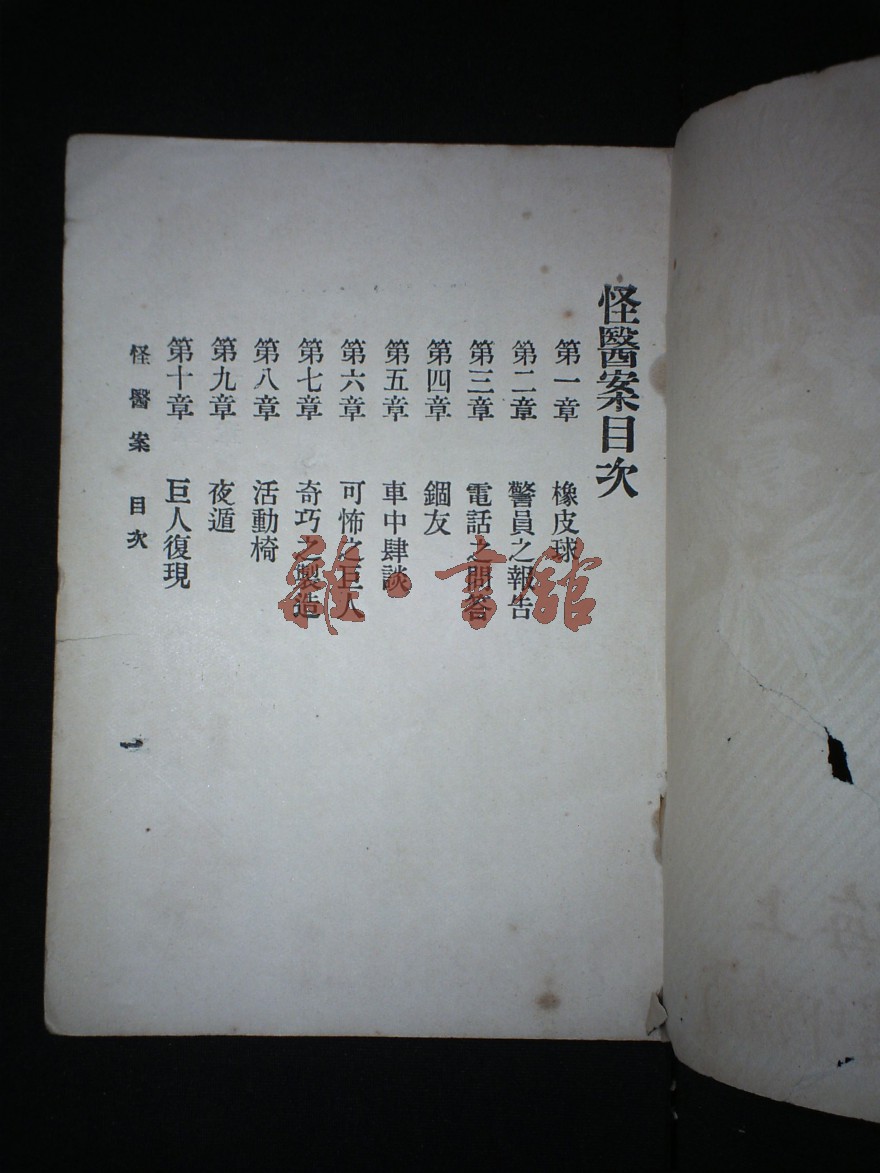 怪醫案目次
第一章 橡皮球
第二章 警員之報告
第三章 電話之問答
第四章 錮友
第五章 車中肆談
第六章 可怖之巨人
第七章 奇巧之製造
第八章 活動椅
第九章 夜遁
第十章 巨人復現
怪醫案 目次
一
雜·書館